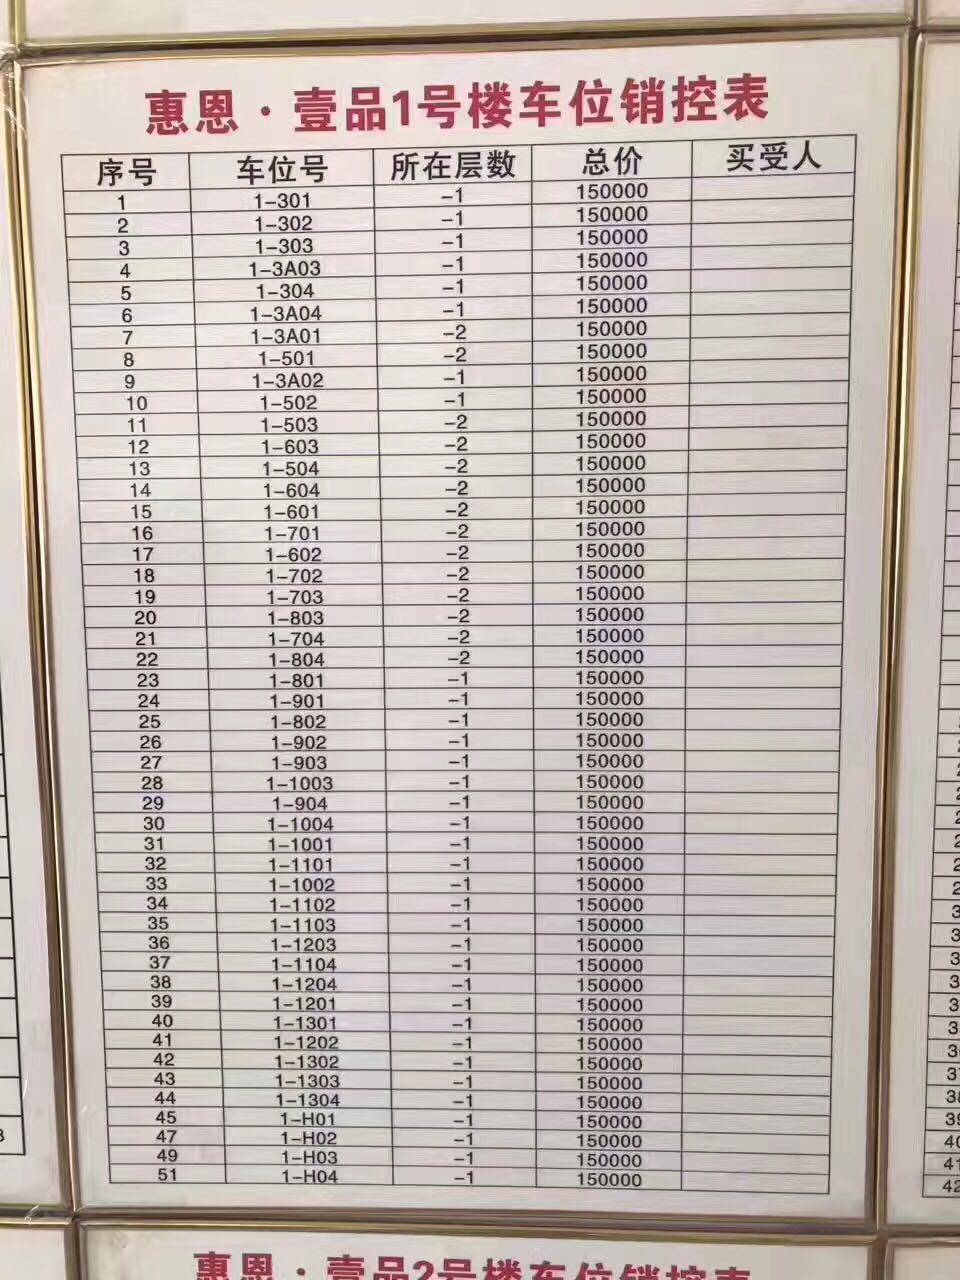 惠恩·壹品1号楼车位销控表
序号 车位号 所在层数 总价 买受人
1 1-301 -1 150000
2 1-302 -1 150000
3 1-303 -1 150000
4 1-3A03 -1 150000
5 1-304 -1 150000
6 1-3A04 -1 150000
7 1-3A01 -2 150000
8 1-501 -2 150000
9 1-3A02 -1 150000
10 1-502 -1 150000
11 1-503 -2 150000
12 1-603 -2 150000
13 1-504 -2 150000
14 1-604 -2 150000
15 1-601 -2 150000
16 1-701 -2 150000
17 1-602 -2 150000
18 1-702 -2 150000
19 1-703 -2 150000
20 1-803 -2 150000
21 1-704 -2 150000
22 1-804 -2 150000
23 1-801 -1 150000
24 1-901 -1 150000
25 1-802 -1 150000
26 1-902 -1 150000
27 1-903 -1 150000
28 1-1003 -1 150000
29 1-904 -1 150000
30 1-1004 -1 150000
31 1-1001 -1 150000
32 1-1101 -1 150000
33 1-1002 -1 150000
34 1-1102 -1 150000
35 1-1103 -1 150000
36 1-1203 -1 150000
37 1-1104 -1 150000
38 1-1204 -1 150000
39 1-1201 -1 150000
40 1-1301 -1 150000
41 1-1202 -1 150000
42 1-1302 -1 150000
43 1-1303 -1 150000
44 1-1304 -1 150000
45 1-H01 -1 150000
47 1-H02 -1 150000
49 1-H03 -1 150000
51 1-H04 -1 150000
惠恩·壹品2号楼车位销控表